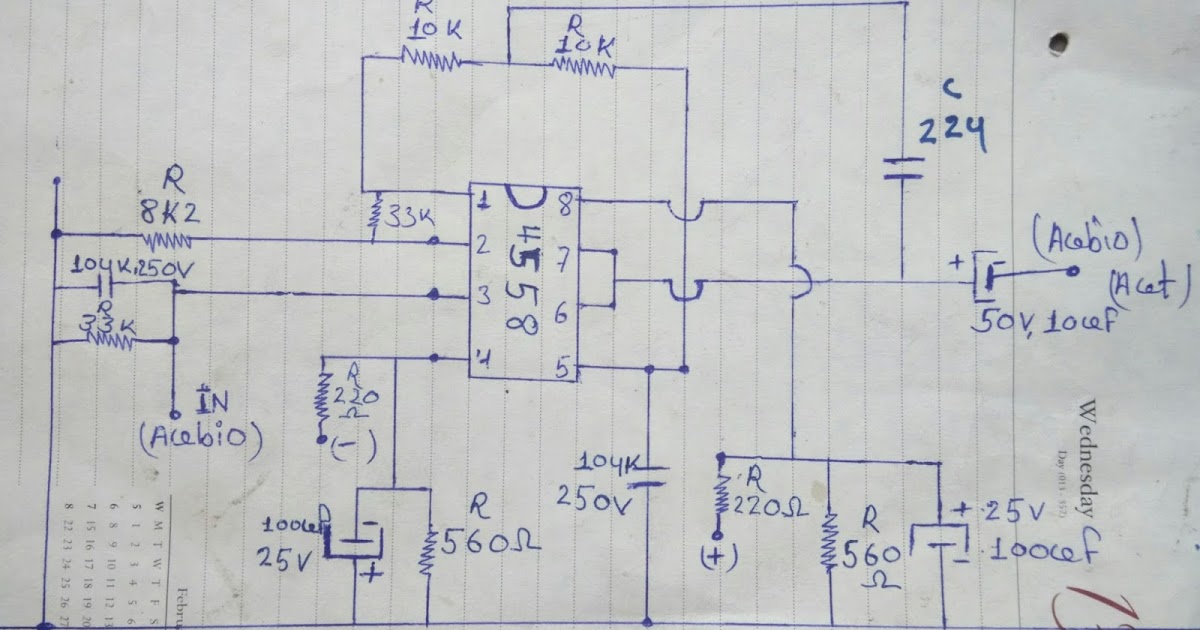 R
10K
R
10K
C
224
R
8K2
33K
1
2
3
4
8
7
6
5
4558
104K,250V
R
33K
IN
(Acebio)
+
-
(Acebio)
(Acet)
50V, 10cef
R
220
Ω
(-)
104K
250V
R
220Ω
(+)
R
560
Ω
+ 25V
100cef
-
100cef
25V
-
+
R
560Ω
Wednesday
Februa
W M T W T F S
5 1 2 3 4 5 6
6 8 9 10 11 12 13
7 15 16 17 18 19 20
8 22 23 24 25 26 27